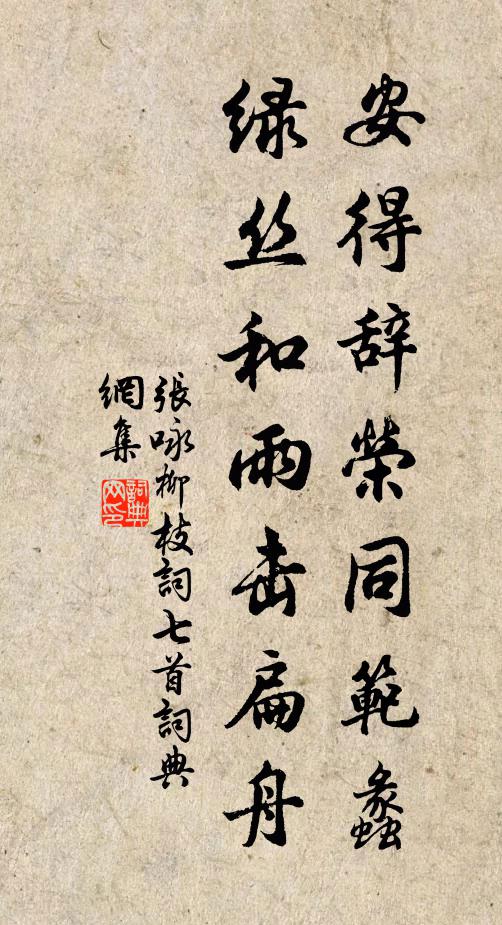 安得辞榮同範蠡
绿丝和雨击扁舟
張咏柳枝詞七首詞典
網集
詞典
网印